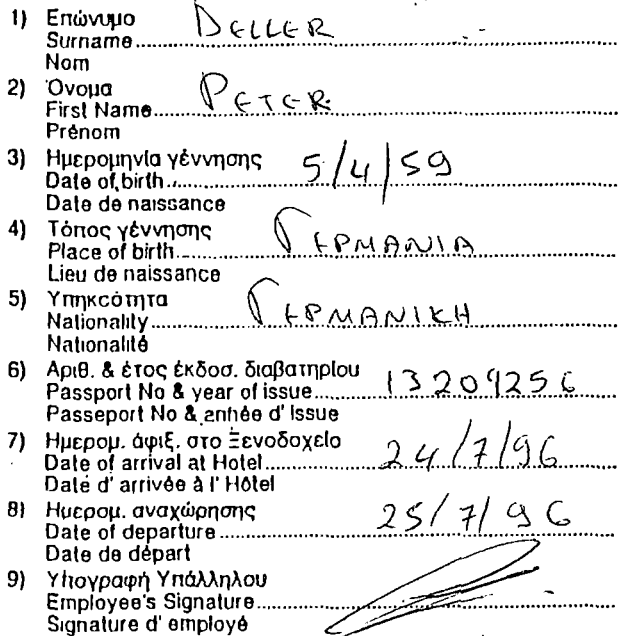 1) Επώνυμο
Surname DELLER
Nom
2) Όνομα
First Name PETER
Prénom
3) Ημερομηνία γέννησης
Date of birth 5/4/59
Date de naissance
4) Τόπος γέννησης
Place of birth ΓΕΡΜΑΝΙΑ
Lieu de naissance
5) Υπηκοότητα
Nationality ΓΕΡΜΑΝΙΚΗ
Nationalité
6) Αριθ. & έτος έκδοσ. διαβατηρίου
Passport No & year of issue 13209256
Passeport No & année d' Issue
7) Ημερομ. άφιξ. στο Ξενοδοχείο
Date of arrival at Hotel 24/7/96
Date d' arrivée à l' Hôtel
8) Ημερομ. αναχώρησης
Date of departure 25/7/96
Date de départ
9) Υπογραφή Υπάλληλου
Employee's Signature
Signature d' employé